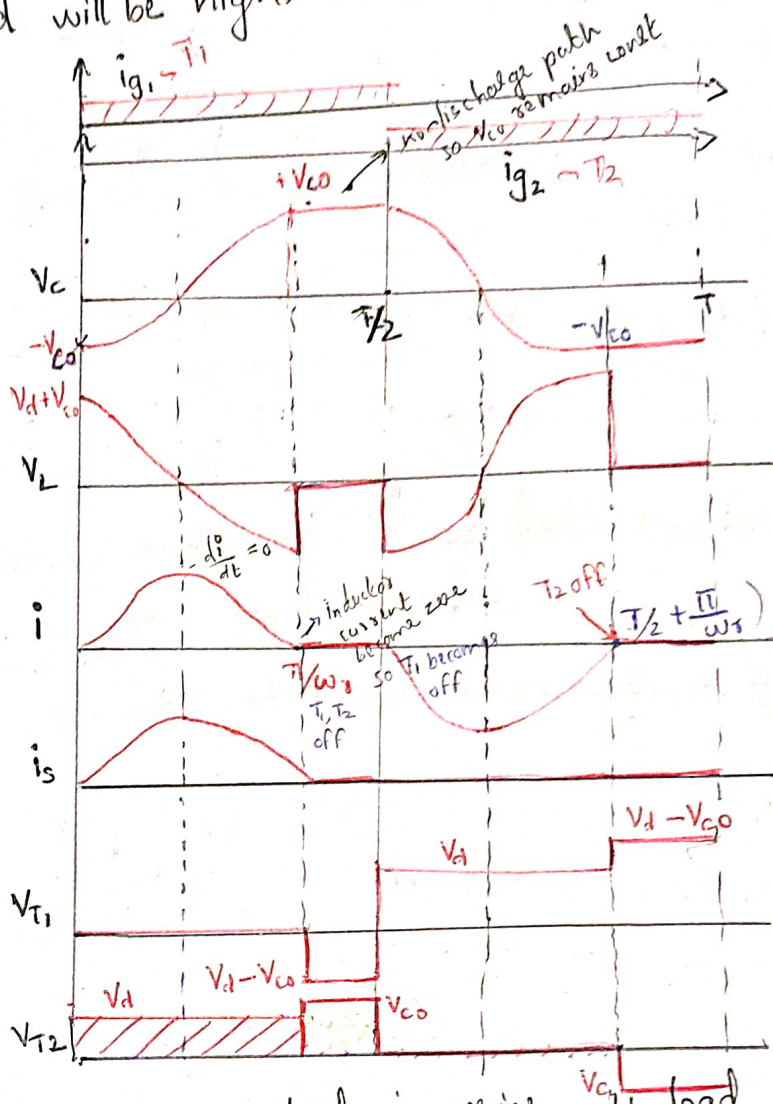 will be high
ig1 ~ T1
no discharge path
so Vco remains const
ig2 ~ T2
+Vco
Vc
T/2
T
-Vco
-Vco
Vd+Vco
VL
di/dt = 0
i
inductor
current
become zero
so T1 becomes
off
T2 off
T/2 + π/ωr)
π/ωr
T1, T2
off
is
Vd - VCO
Vd
VT1
Vd-Vco
Vd
Vco
VT2